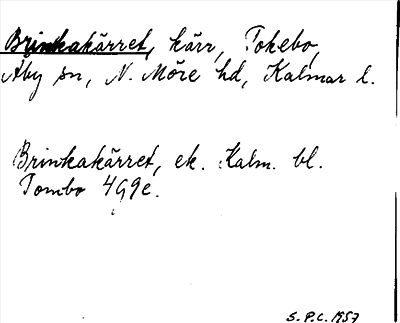 Brinkakärret, kärr, Tokebo,
Åby sn, N. Möre hd, Kalmar l.
Brinkakärret, ek. Kalm. bl.
Tombo 4G9e.
S.P.C. 1957